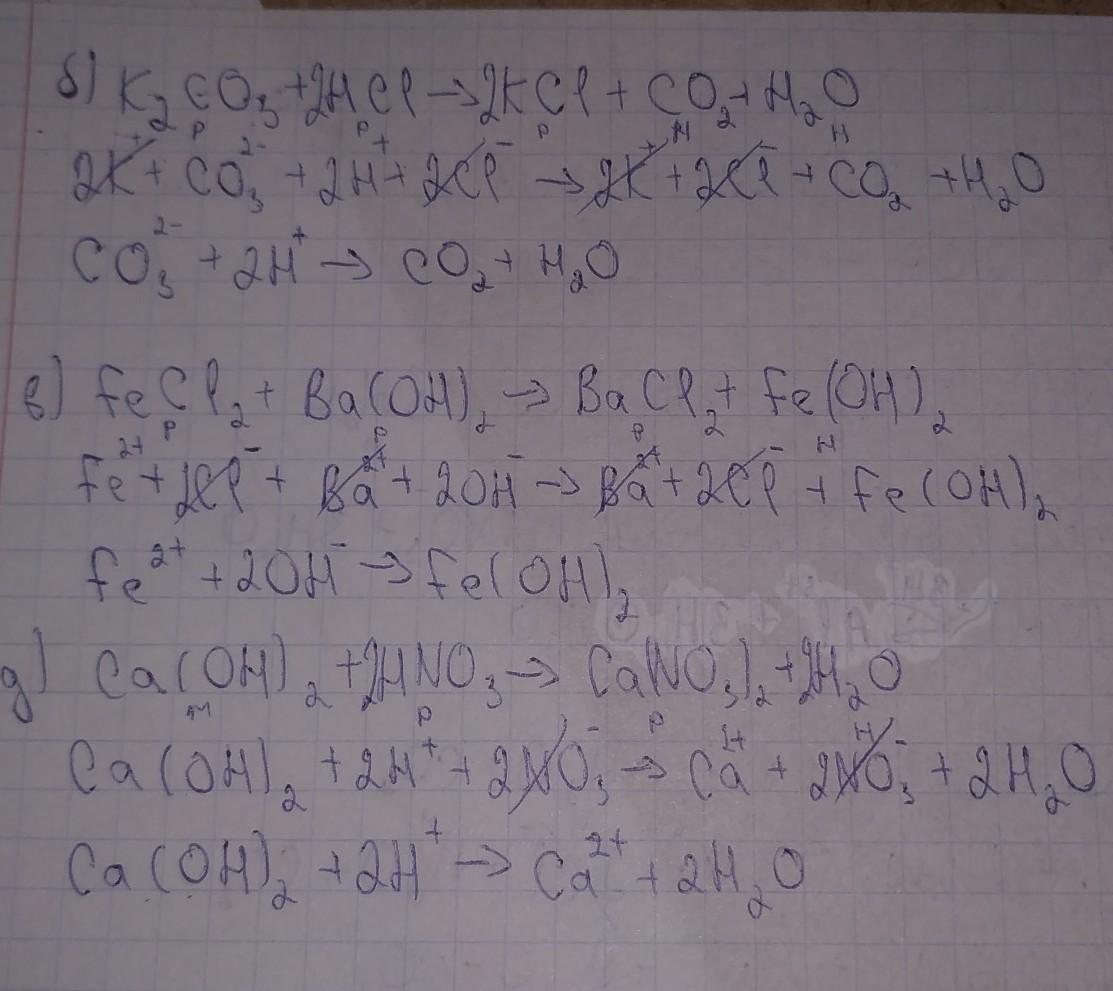 б) K₂CO₃ + 2HCl → 2KCl + CO₂ + H₂O
р р р н н
2K⁺ + CO₃²⁻ + 2H⁺ + 2Cl⁻ → 2K⁺ + 2Cl⁻ + CO₂ + H₂O
CO₃²⁻ + 2H⁺ → CO₂ + H₂O
в) FeCl₂ + Ba(OH)₂ → BaCl₂ + Fe(OH)₂
р р р н
Fe²⁺ + 2Cl⁻ + Ba²⁺ + 2OH⁻ → Ba²⁺ + 2Cl⁻ + Fe(OH)₂
Fe²⁺ + 2OH⁻ → Fe(OH)₂
д) Ca(OH)₂ + 2HNO₃ → Ca(NO₃)₂ + 2H₂O
м р р н
Ca(OH)₂ + 2H⁺ + 2NO₃⁻ → Ca²⁺ + 2NO₃⁻ + 2H₂O
Ca(OH)₂ + 2H⁺ → Ca²⁺ + 2H₂O